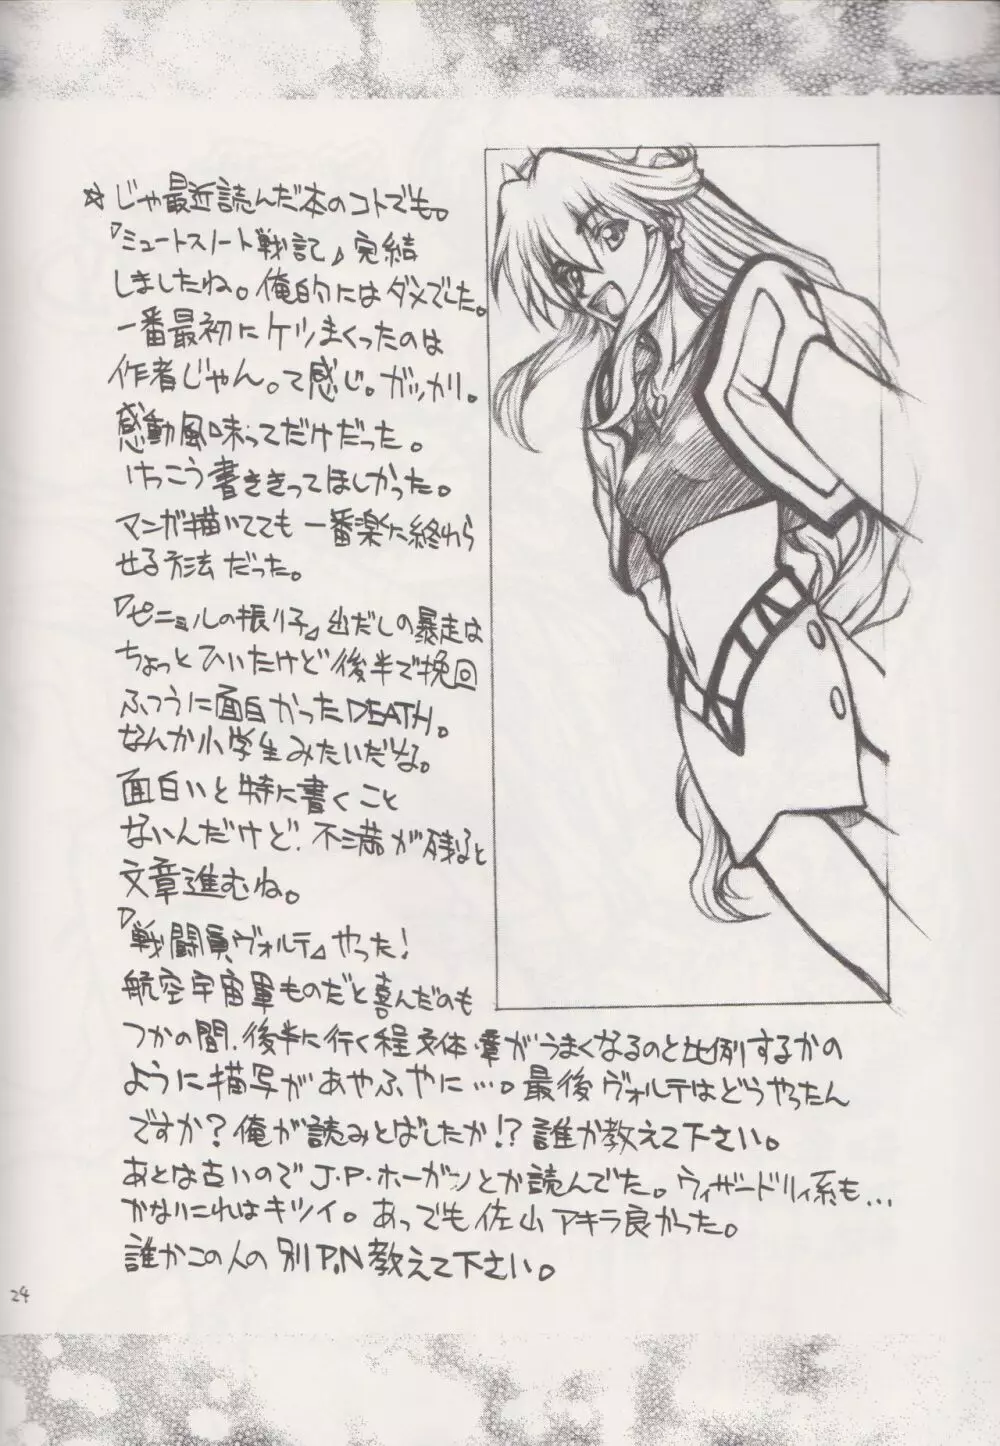 ☆じゃ最近読んだ本のコトでも。
『ミュートスノート戦記』完結
しましたね。俺的にはダメでした。
一番最初にケツまくったのは
作者じゃん。って感じ。ガッカリ。
感動風味ってだけだった。
けっこう書ききってほしかった。
マンガ描いてても一番楽な終わら
せる方法だった。
『ピニェルの振り子』出だしの暴走は
ちょっとひいたけど後半で挽回
ふつうに面白かったDEATH。
なんか小学生みたいだな。
面白いと特に書くこと
ないんだけど、不満が残ると
文章進むね。
『戦闘員ヴォルテ』やった!
航空宇宙軍ものだと喜んだのも
つかの間、後半に行く程文体・章がうまくなるのと比例するかの
ように描写があやふやに…。最後ヴォルテはどうやったん
ですか?俺が読みとばしたか!?誰か教えて下さい。
あとは古いのでJ・P・ホーガンとか読んでた。ウィザードリィ系も…
かないこれはキツイ。あっでも佐山アキラ良かった。
誰かこの人の別P.N教えて下さい。
24